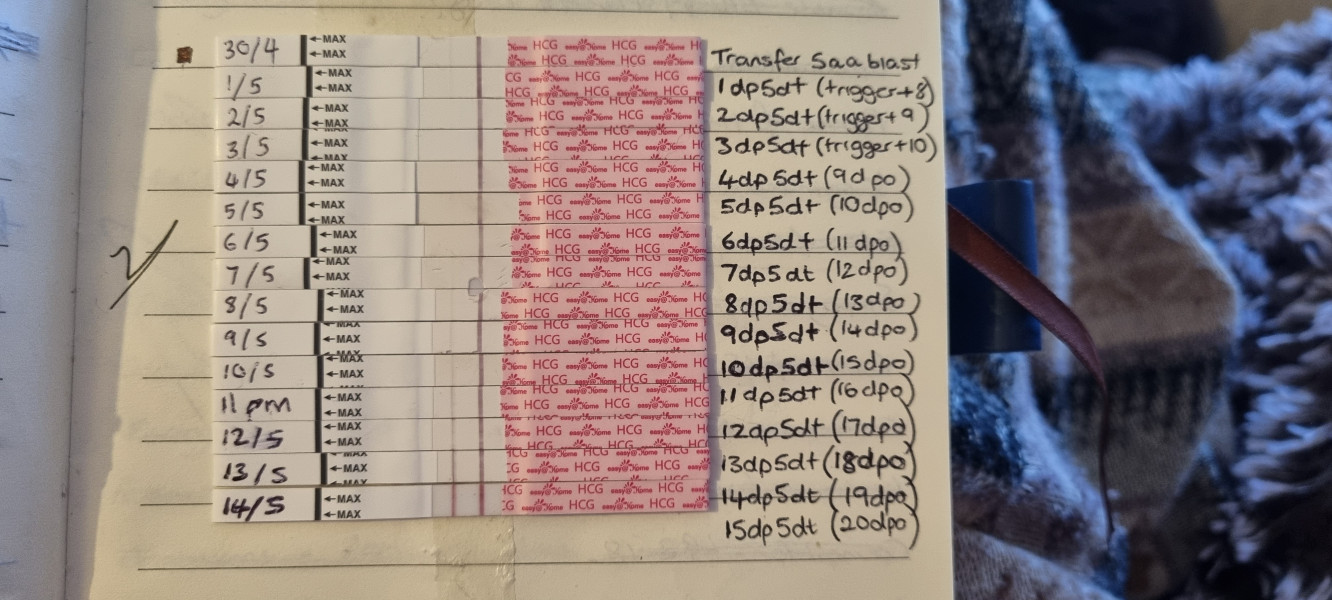 30/4 ←MAX ←MAX HCG easy@Home HCG Transfer 5aa blast
1/5 ←MAX ←MAX HCG easy@Home HCG 1dp5dt (trigger+8)
2/5 ←MAX ←MAX HCG easy@Home HCG 2dp5dt (trigger+9)
3/5 ←MAX ←MAX HCG easy@Home HCG 3dp5dt (trigger+10)
4/5 ←MAX ←MAX HCG easy@Home HCG 4dp5dt (9dpo)
5/5 ←MAX ←MAX HCG easy@Home HCG 5dp5dt (10dpo)
6/5 ←MAX ←MAX HCG easy@Home HCG 6dp5dt (11dpo)
7/5 ←MAX ←MAX HCG easy@Home HCG 7dp5dt (12dpo)
8/5 ←MAX ←MAX HCG easy@Home HCG 8dp5dt (13dpo)
9/5 ←MAX ←MAX HCG easy@Home HCG 9dp5dt (14dpo)
10/5 ←MAX ←MAX HCG easy@Home HCG 10dp5dt (15dpo)
11 pm ←MAX ←MAX HCG easy@Home HCG 11dp5dt (16dpo)
12/5 ←MAX ←MAX HCG easy@Home HCG 12dp5dt (17dpo)
13/5 ←MAX ←MAX HCG easy@Home HCG 13dp5dt (18dpo)
14/5 ←MAX ←MAX HCG easy@Home HCG 14dp5dt (19dpo)
15dp5dt (20dpo)